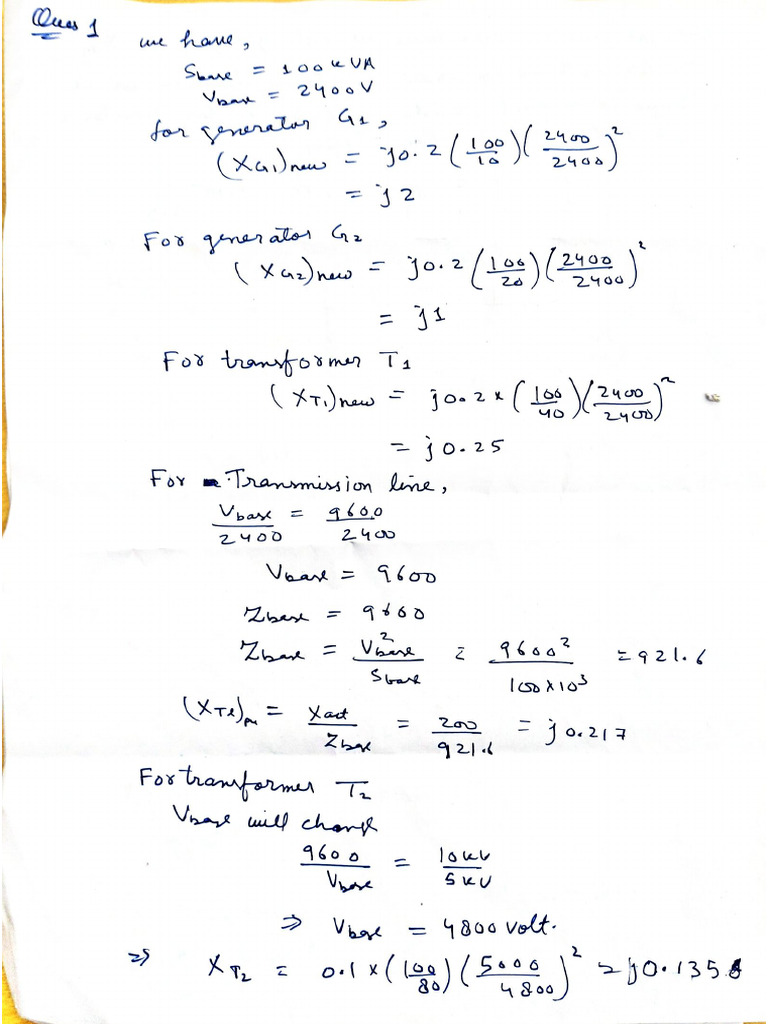 Ques 1
we have,
Sbase = 100kVA
Vbase = 2400V
for generator G1,
(XG1)new = j0.2 (100/10)(2400/2400)²
= j2
For generator G2
(XG2)new = j0.2 (100/20)(2400/2400)²
= j1
For transformer T1
(XT1)new = j0.2 x (100/40)(2400/2400)²
= j0.25
For Transmission line,
Vbase/2400 = 9600/2400
Vbase = 9600
Zbase = 9600
Zbase = Vbase²/Sbase = 9600²/100x10³ = 921.6
(XTl)pu = Xact/Zbase = 200/921.6 = j0.217
For transformer T2
Vbase will change
9600/Vbase = 10kV/5kV
⇒ Vbase = 4800 volt.
⇒ XT2 = 0.1 x (100/80)(5000/4800)² = j0.135